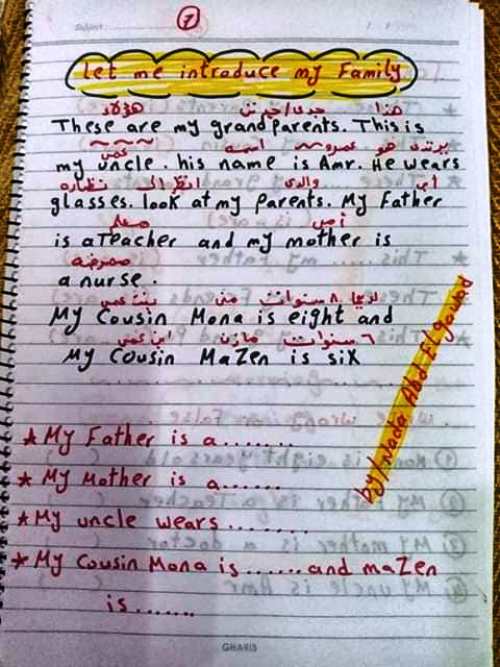 Subject
1
Let me introduce my Family
هؤلاء جدى/جدتى هذا
These are my grandparents. This is
عمى اسمه عمرو هو يرتدى
my uncle. his name is Amr. He wears
نظاره انظر الى والدى أبى
glasses. look at my parents. My Father
معلم أمى
is a Teacher and my mother is
ممرضه
a nurse.
بنت عمى منى ٨ سنوات
My Cousin Mona is eight and
ابن عمى مازن ٦ سنوات
My Cousin MaZen is six
by/Nada Abd El gawad
★ My Father is a........
★ My Mother is a.......
★ My uncle wears.........
★ My Cousin Mona is.......and maZen
is.......
GHARIB